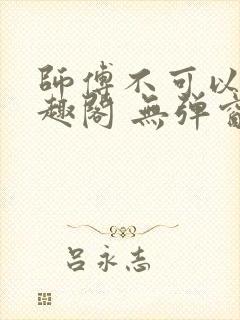 師傅不可以
趣閣 無彈窗
吕永志